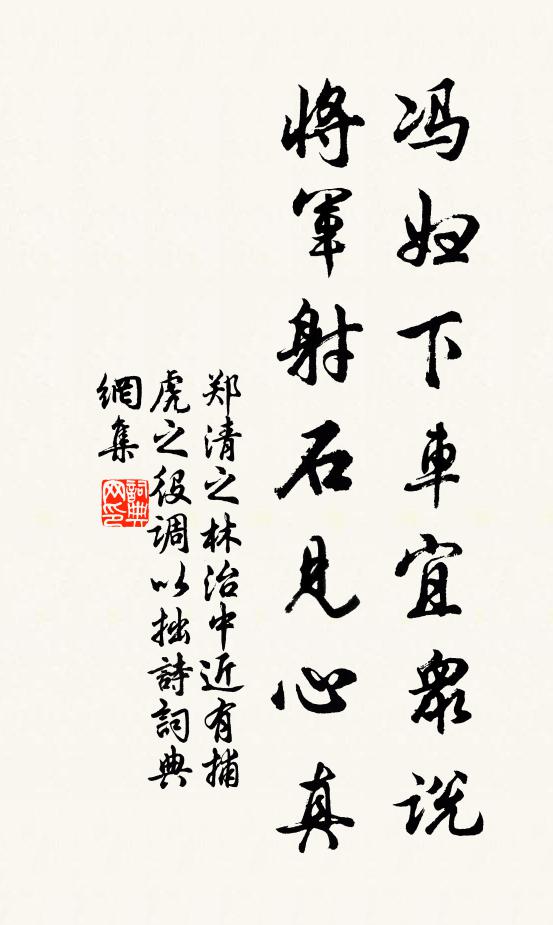 冯妇下車宜衆说
將軍射石見心真
郑清之林治中近有捕
虎之役调以拙詩詞典
網集
詞典
网印